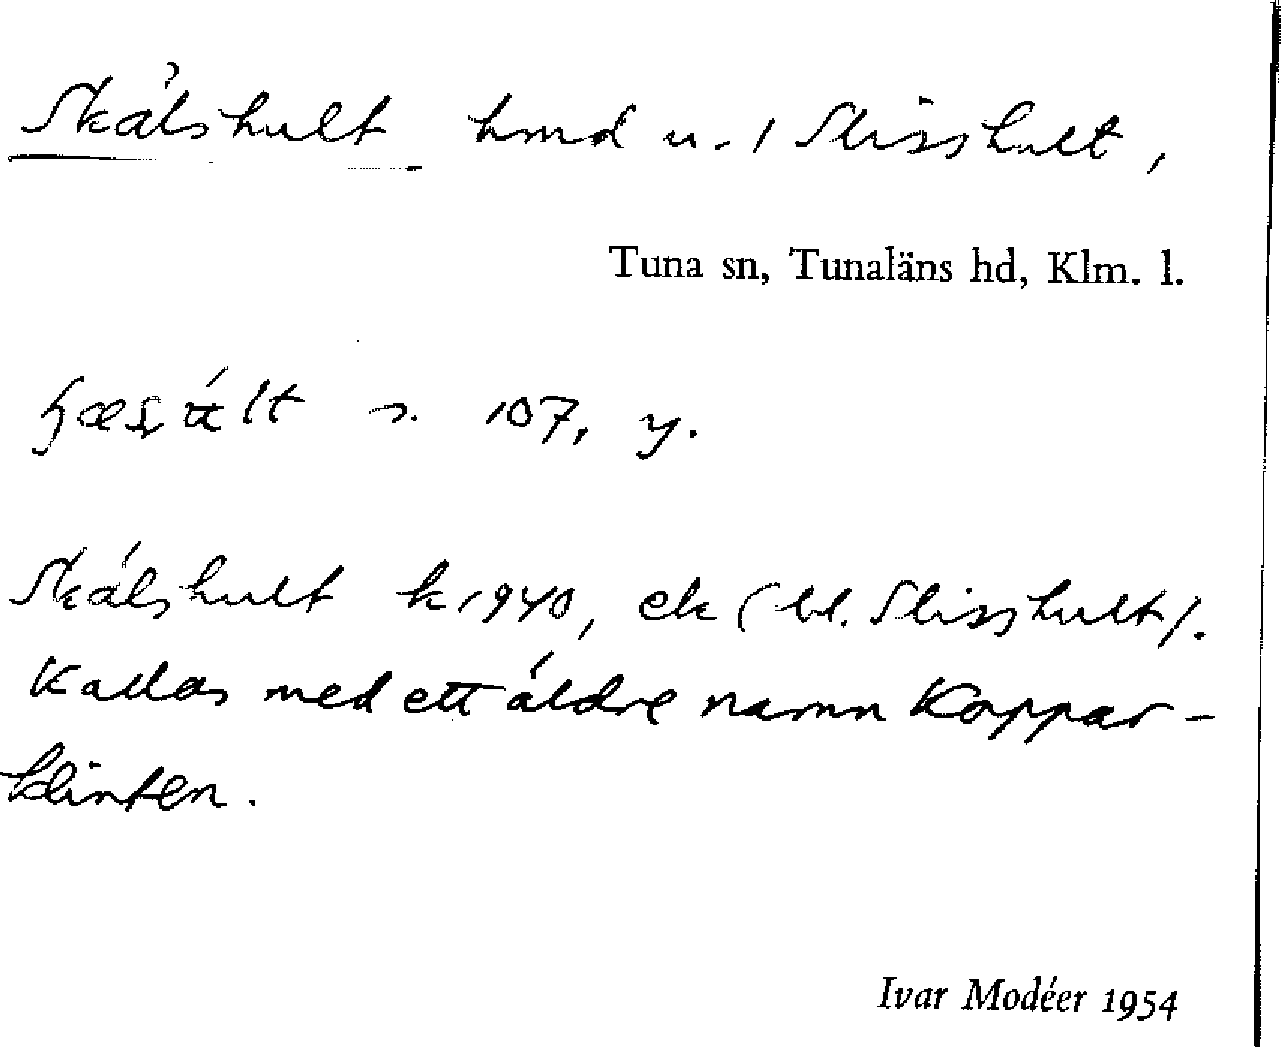 Skålshult hmd u. 1 Slisshult,
Tuna sn, Tunaläns hd, Klm. l.
s. 107, y.
Skålshult k 1940, ek (bl. Slisshult).
Kallas med ett äldre namn Koppar-
klinten.
Ivar Modéer 1954